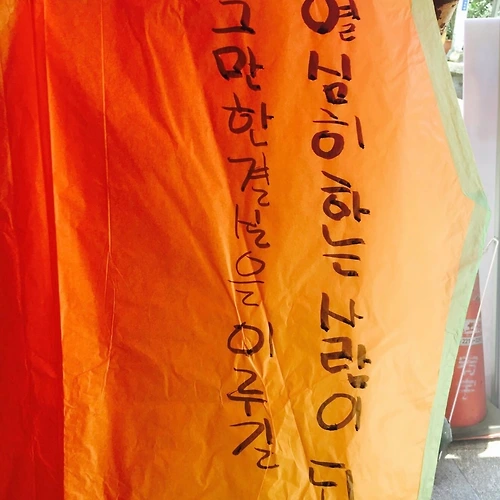 열심히 하는 사람이
그만한 결실을 이루길